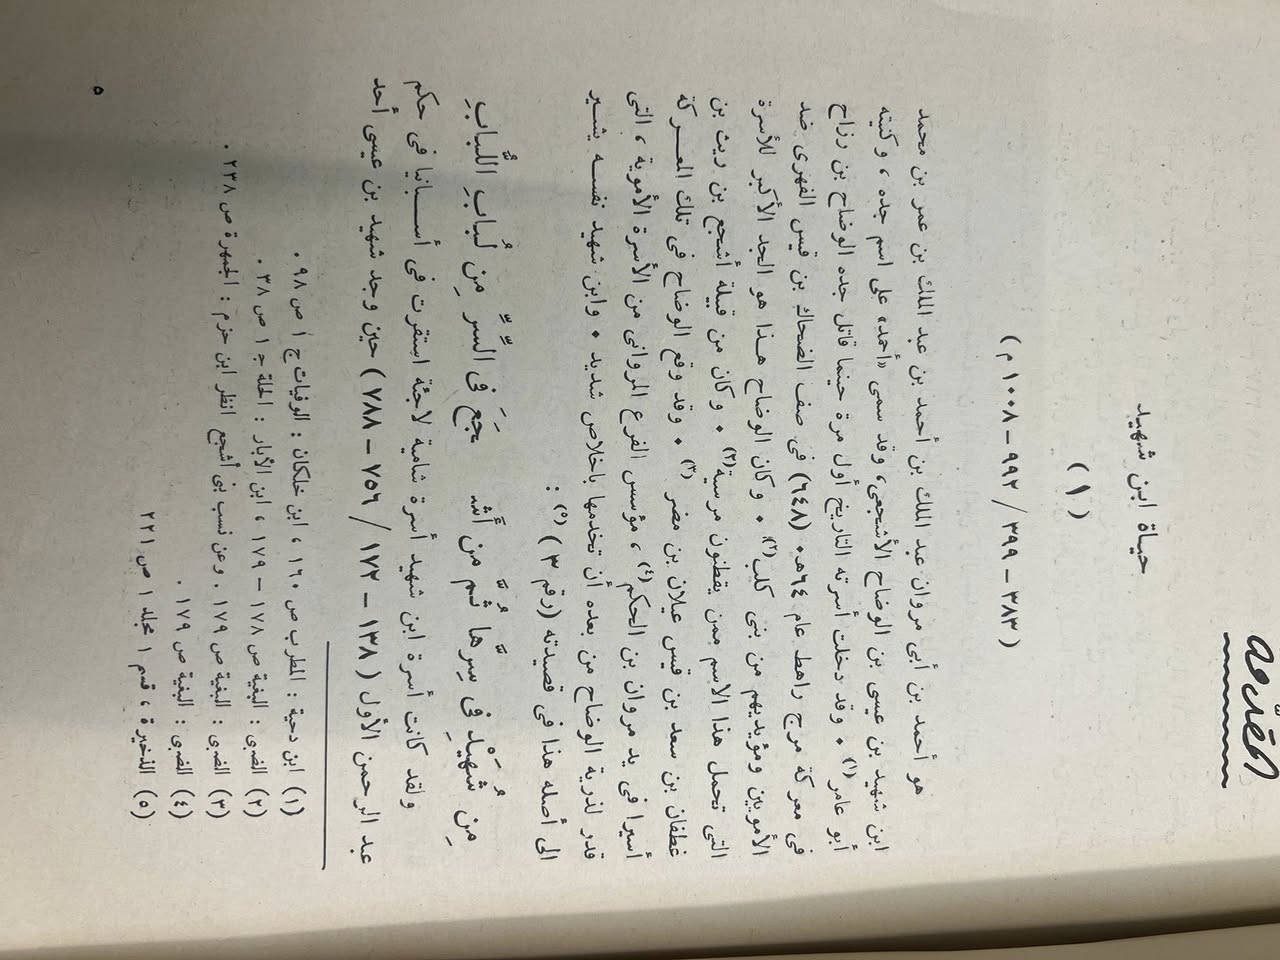 مقدّمة
حياة ابن شهيد
( ١ )
( ٣٨٣ – ٣٩٩ / ٩٩٢ – ١٠٠٨ م )
هو أحمد بن أبى مروان عبد الملك بن أحمد بن عبد الملك بن عمر بن محمد
ابن شهيد بن عيسى بن الوضاح الأشجعى، وقد سمى «أحمد» على اسم جده ، وكنيته
أبو عامر (١) ٠ وقد دخلت أسرته التاريخ أول مرة حينما قاتل جده الوضاح بن رزاح
فى معركة مرج راهط عام ٦٤هـ (٦٤٨) فى صف الضحاك بن قيس الفهرى ضد
الأمويين ومؤيديهم من بنى كلب(٢) ٠ وكان الوضاح هـذا هو الجد الأكبر للأسرة
التى تحمل هذا الاسم ممن يقطنون مرسية(٢) ٠ وكان من قبيلة أشجع بن ريث بن
غطفان بن سعد بن قيس عيلان بن مضر (٣) ٠ وقد وقع الوضاح فى تلك المعـركة
أسيرا فى يد مروان بن الحكم(٤) ، مؤسس الفرع المروانى من الأسرة الأموية ، التى
قدر لذرية الوضاح من بعده أن تخدمها باخلاص شديد ٠ وابن شهيد نفسـه يشـير
الى أصله هذا فى قصيدته (رقم ٣ ) (٥) :
مِن شُهَيْدٍ فى سِرِّها ثُمَّ من أشْـ جَعَ فى السِّرِّ مِن لُبابِ اللُّبابِ
ولقد كانت أسرة ابن شهيد أسرة شامية لاجئة استقرت فى أسـبانيا فى حكم
عبد الرحمن الأول ( ١٣٨ – ١٧٢ / ٧٥٦ – ٧٨٨ ) حين وجد شهيد بن عيسى أحد
(١) ابن دحية : المطرب ص ١٦٠ ، ابن خلكان : الوفيات ج ١ ص ٩٨ .
(٢) الضبى : البغية ص ١٧٨ – ١٧٩ ، ابن الأبار : الحلة ج ١ ص ٣٨ .
(٣) الضبى : البغية ص ١٧٩ . وعن نسب بنى أشجع انظر ابن حزم : الجمهرة ص ٢٣٨ .
(٤) الضبى : البغية ص ١٧٩ .
(٥) الذخيرة ، قسم ١ مجلد ١ ص ٢٢١
٥